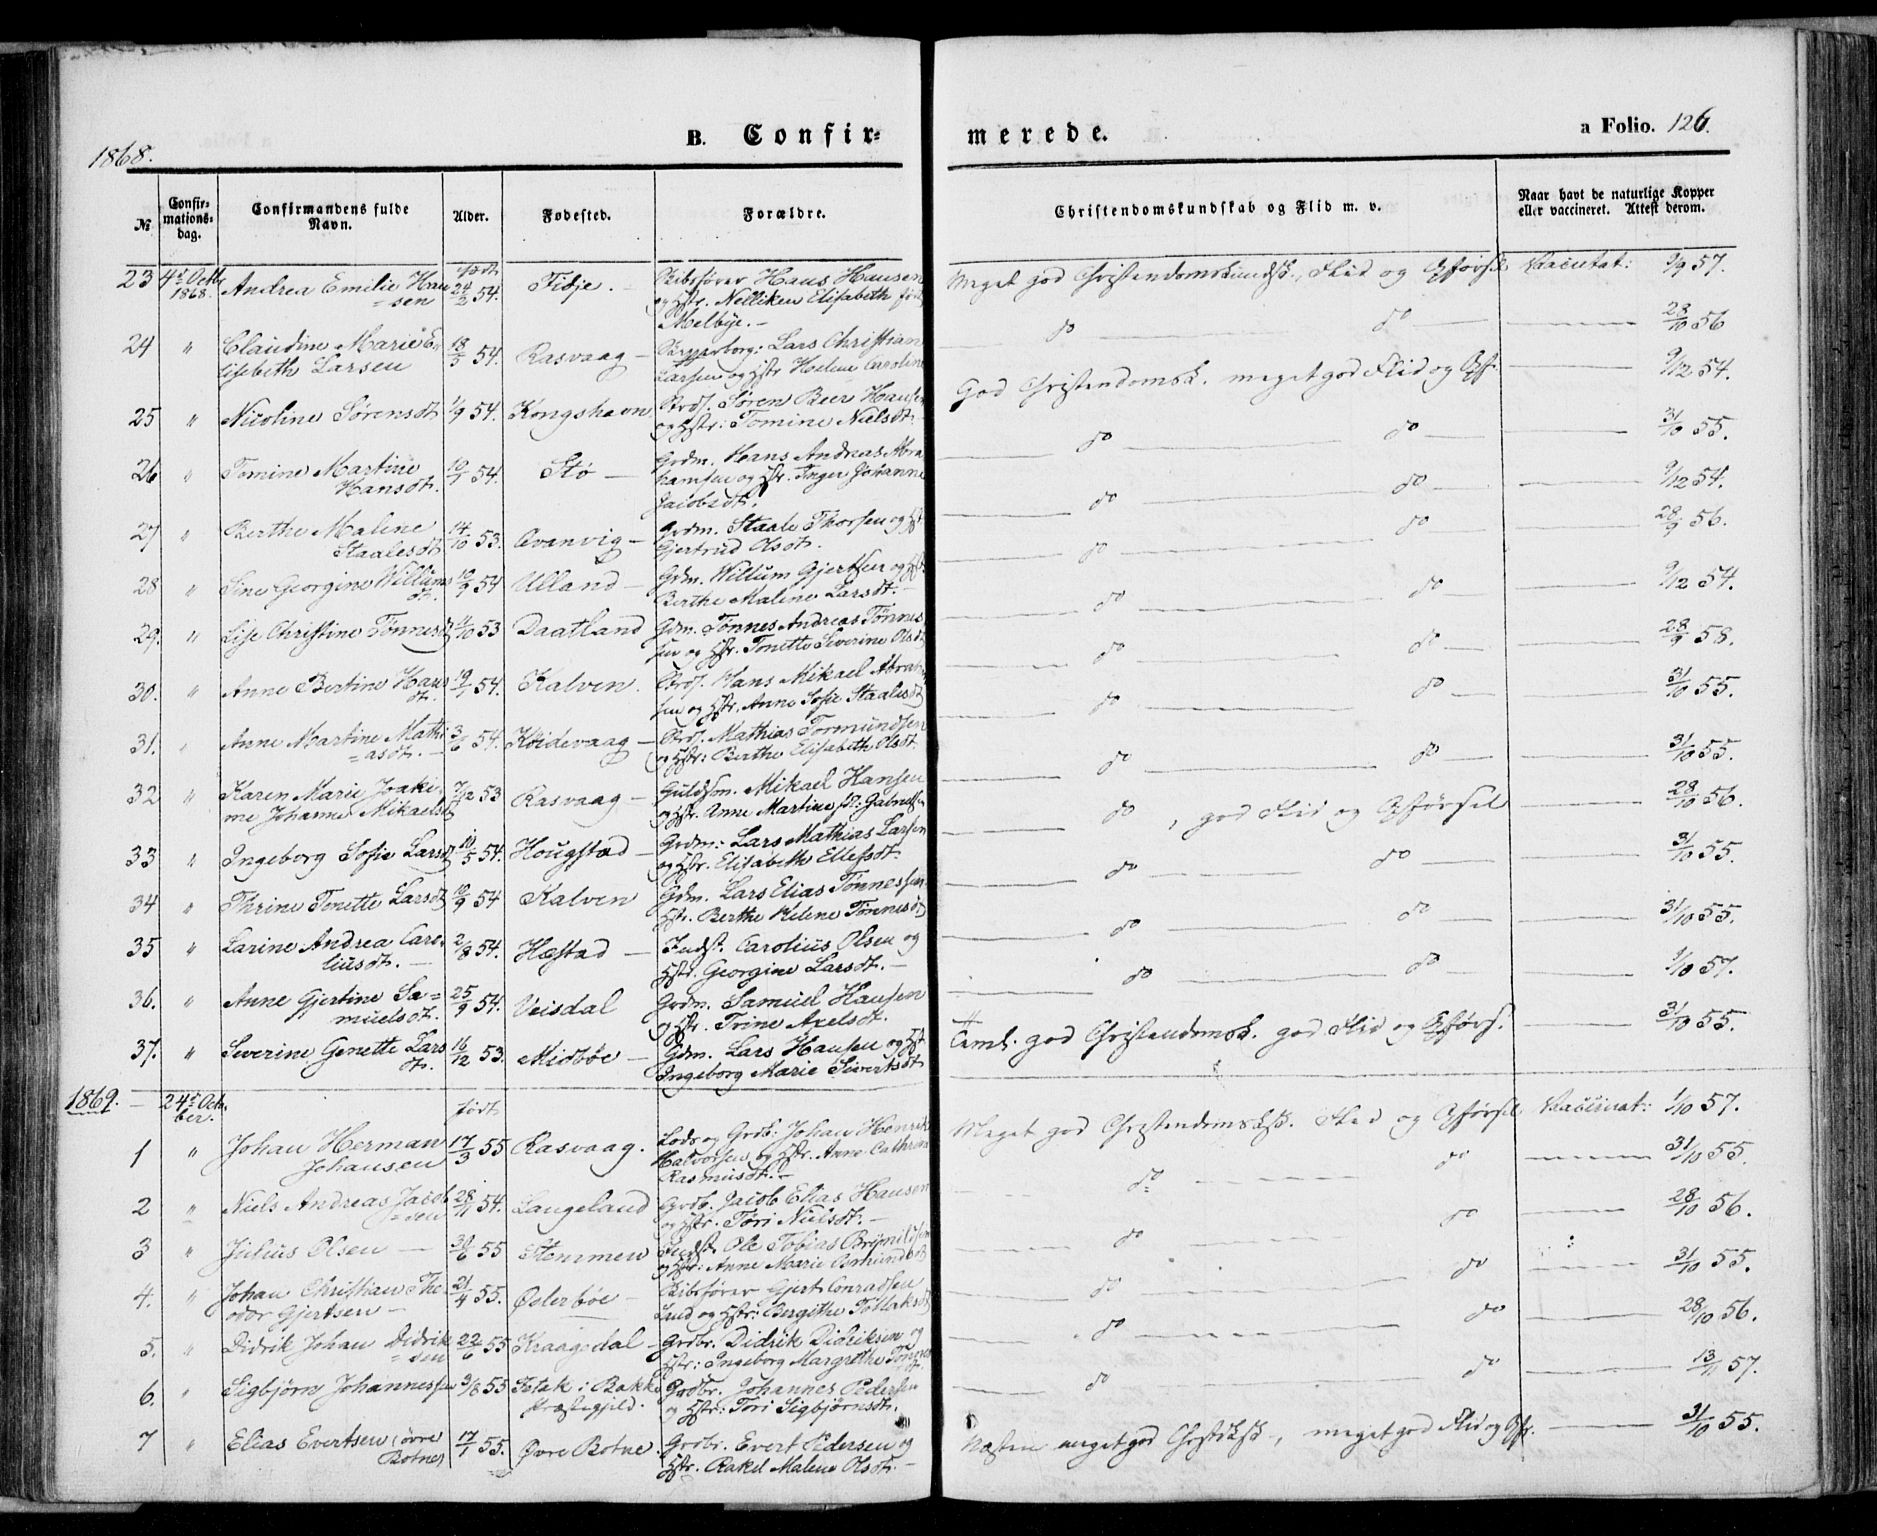 1868.
B. Confir=
merede.
a Folio. 126.
№
Confir=
mations=
dag.
Confirmandens fulde
Navn.
Alder.
Fødested.
Forældre.
Christendomskundskab og Flid m. v.
Naar havt de naturlige Kopper
eller vaccineret. Attest derom.
23 4de Octb. 1868. Andrea Emilie Han=
sen
født 24/2 54. Fidje. Hans Hansen
og Hstr. Nelliken Elisabeth født
Melbye.
Meget god Christendomskundsk., Flid og Opførsel Vaccinat: 9/9 57.
24 " Claudine Marie E=
lisebeth Larsen 18/5 54. Rasvaag Lars Christian
Larsen og Hstr. Helene Caroline
do do 28/10 56
25 " Nicoline Sørensdt. 1/9 54. Kongshavn Strds. Søren Beer Hansen
og Hstr: Tomine Nielsdt.
God Christendomsk. meget god Flid og Opf. 9/12 54.
26 " Tomine Martine
Hansdt. 10/1 54. Stø Grdm. Hans Andreas Abra
hamsen og Hstr. Inger Johanne
Jacobsdt.
do do 31/10 55.
27 " Berthe Malene
Staalesdt. 14/10 53. Ovenvig Grdm. Staale Thorsen og Hst
Gjertrud Olsdt.
do do 9/12 54.
28 " Sine Georgine Willums
dt. 10/9 54 Ulland Gdm. Willum Gjertsen og Hst.
Berthe Malene Larsdt.
do do 28/9 56.
29. " Lise Christine Tønnesdt 4/10 53 Daatland Gdm. Tønnes Andreas Tønnes
sen og Hstr. Tonette Severine Olsdt
do do 9/12 54.
30. " Anne Bertine Hans
dt. 19/1 54. Kalven. Strds. Hans Mikael Abrah
sen og Hstr. Anne Sofie Staalesdt
do do 28/9 58.
31. " Anne Martine Mathi
=asdt. 3/6 54. Køidevaag Strds. Mathias Tormundsen
og Hstr: Berthe Elisabeth Olsdt.
do do 31/10 55.
32 " Karen Marie Joaki=
me Johanne Mikaelsdt 7/12 53 Rasvaag Guldsm. Mikael Hansen
og Hstr. Anne Martine fd: Gabrielsen
do do 31/10 55.
33 " Ingeborg Sofie Larsdt 10/5 54. Hougstad Grdm: Lars Mathias Larsen
og Hstr. Elisabeth Ellefsdt.
do, god Flid og Opførsel 28/10 56.
34 " Thrine Tonette Larsdt 10/9 54 Kalven Gdm. Lars Elias Tønnessen
Hstr. Berthe Helene Tønnesdt
do do 31/10 55.
35 " Larine Andrea Caro=
liusdt. 2/8 54. Hæstad Indst. Carolius Olsen og
Hstr. Georgine Larsdt.
do do 31/10 55.
36. " Anne Gjertine Sa=
muelsdt. 25/9 54. Veisdal Grdm. Samuel Hansen
og Hstr. Trine Axelsdt.
do do 1/10 57.
37. " Severine Genette Lars
dt. 16/12 53. Midbøe Gdm. Lars Hansen og Hst
Ingeborg Marie Sivertsdt
Teml. god Christendomsk. god Flid og Opførs. 31/10 55.
1869. 24de Octo=
ber.
født
1 " Johan Herman
Johansen 17/3 55 Rasvaag. Lods og Grdb: Johan Henrik
Halvorsen og Hstr. Anne Cathrine
Rasmusdt.
Meget god Christendomsksk. Flid og Opførsel Vaccinat: 1/10 57.
2 " Niels Andreas Jacob
=sen 28/11 54. Langeland Grdb. Jacob Elias Hansen
og Hstr. Tori Nielsdt.
do do 31/10 55.
3 " Julius Olsen 30/6 55 Stemmen Indst. Ole Tobias
og Hstr: Anne Marie Osmundsdt
do do 28/10 56.
4. " Johan Christian The
odor Gjertsen 21/4 55. Øslerbøe Gjert Conradsen
Land og Hstr: Bergithe Tollaksdt
do do 31/10 55.
5. " Didrik Johan Didrik
=sen 22/6 55 Kraagedal Grdbr. Didrik Didriksen og
Hstr: Ingeborg Margrethe Tønnes
do do 28/10 56.
6. " Sigbjørn Johannessen 3/8 55 i Bakke
Præstegjeld. Grdbr. Johannes Pedersen
og Hstr: Tori Sigbjørnsdt.
do do 13/11 57.
7 " Elias Evertsen (øvre
Botne) 17/1 55. Øvre Botne Grdbr. Evert Pedersen og
Hstr. Rakel Malene Olsdt.
Næsten meget god Christdksk., meget god Flid og Opf. 31/10 55.